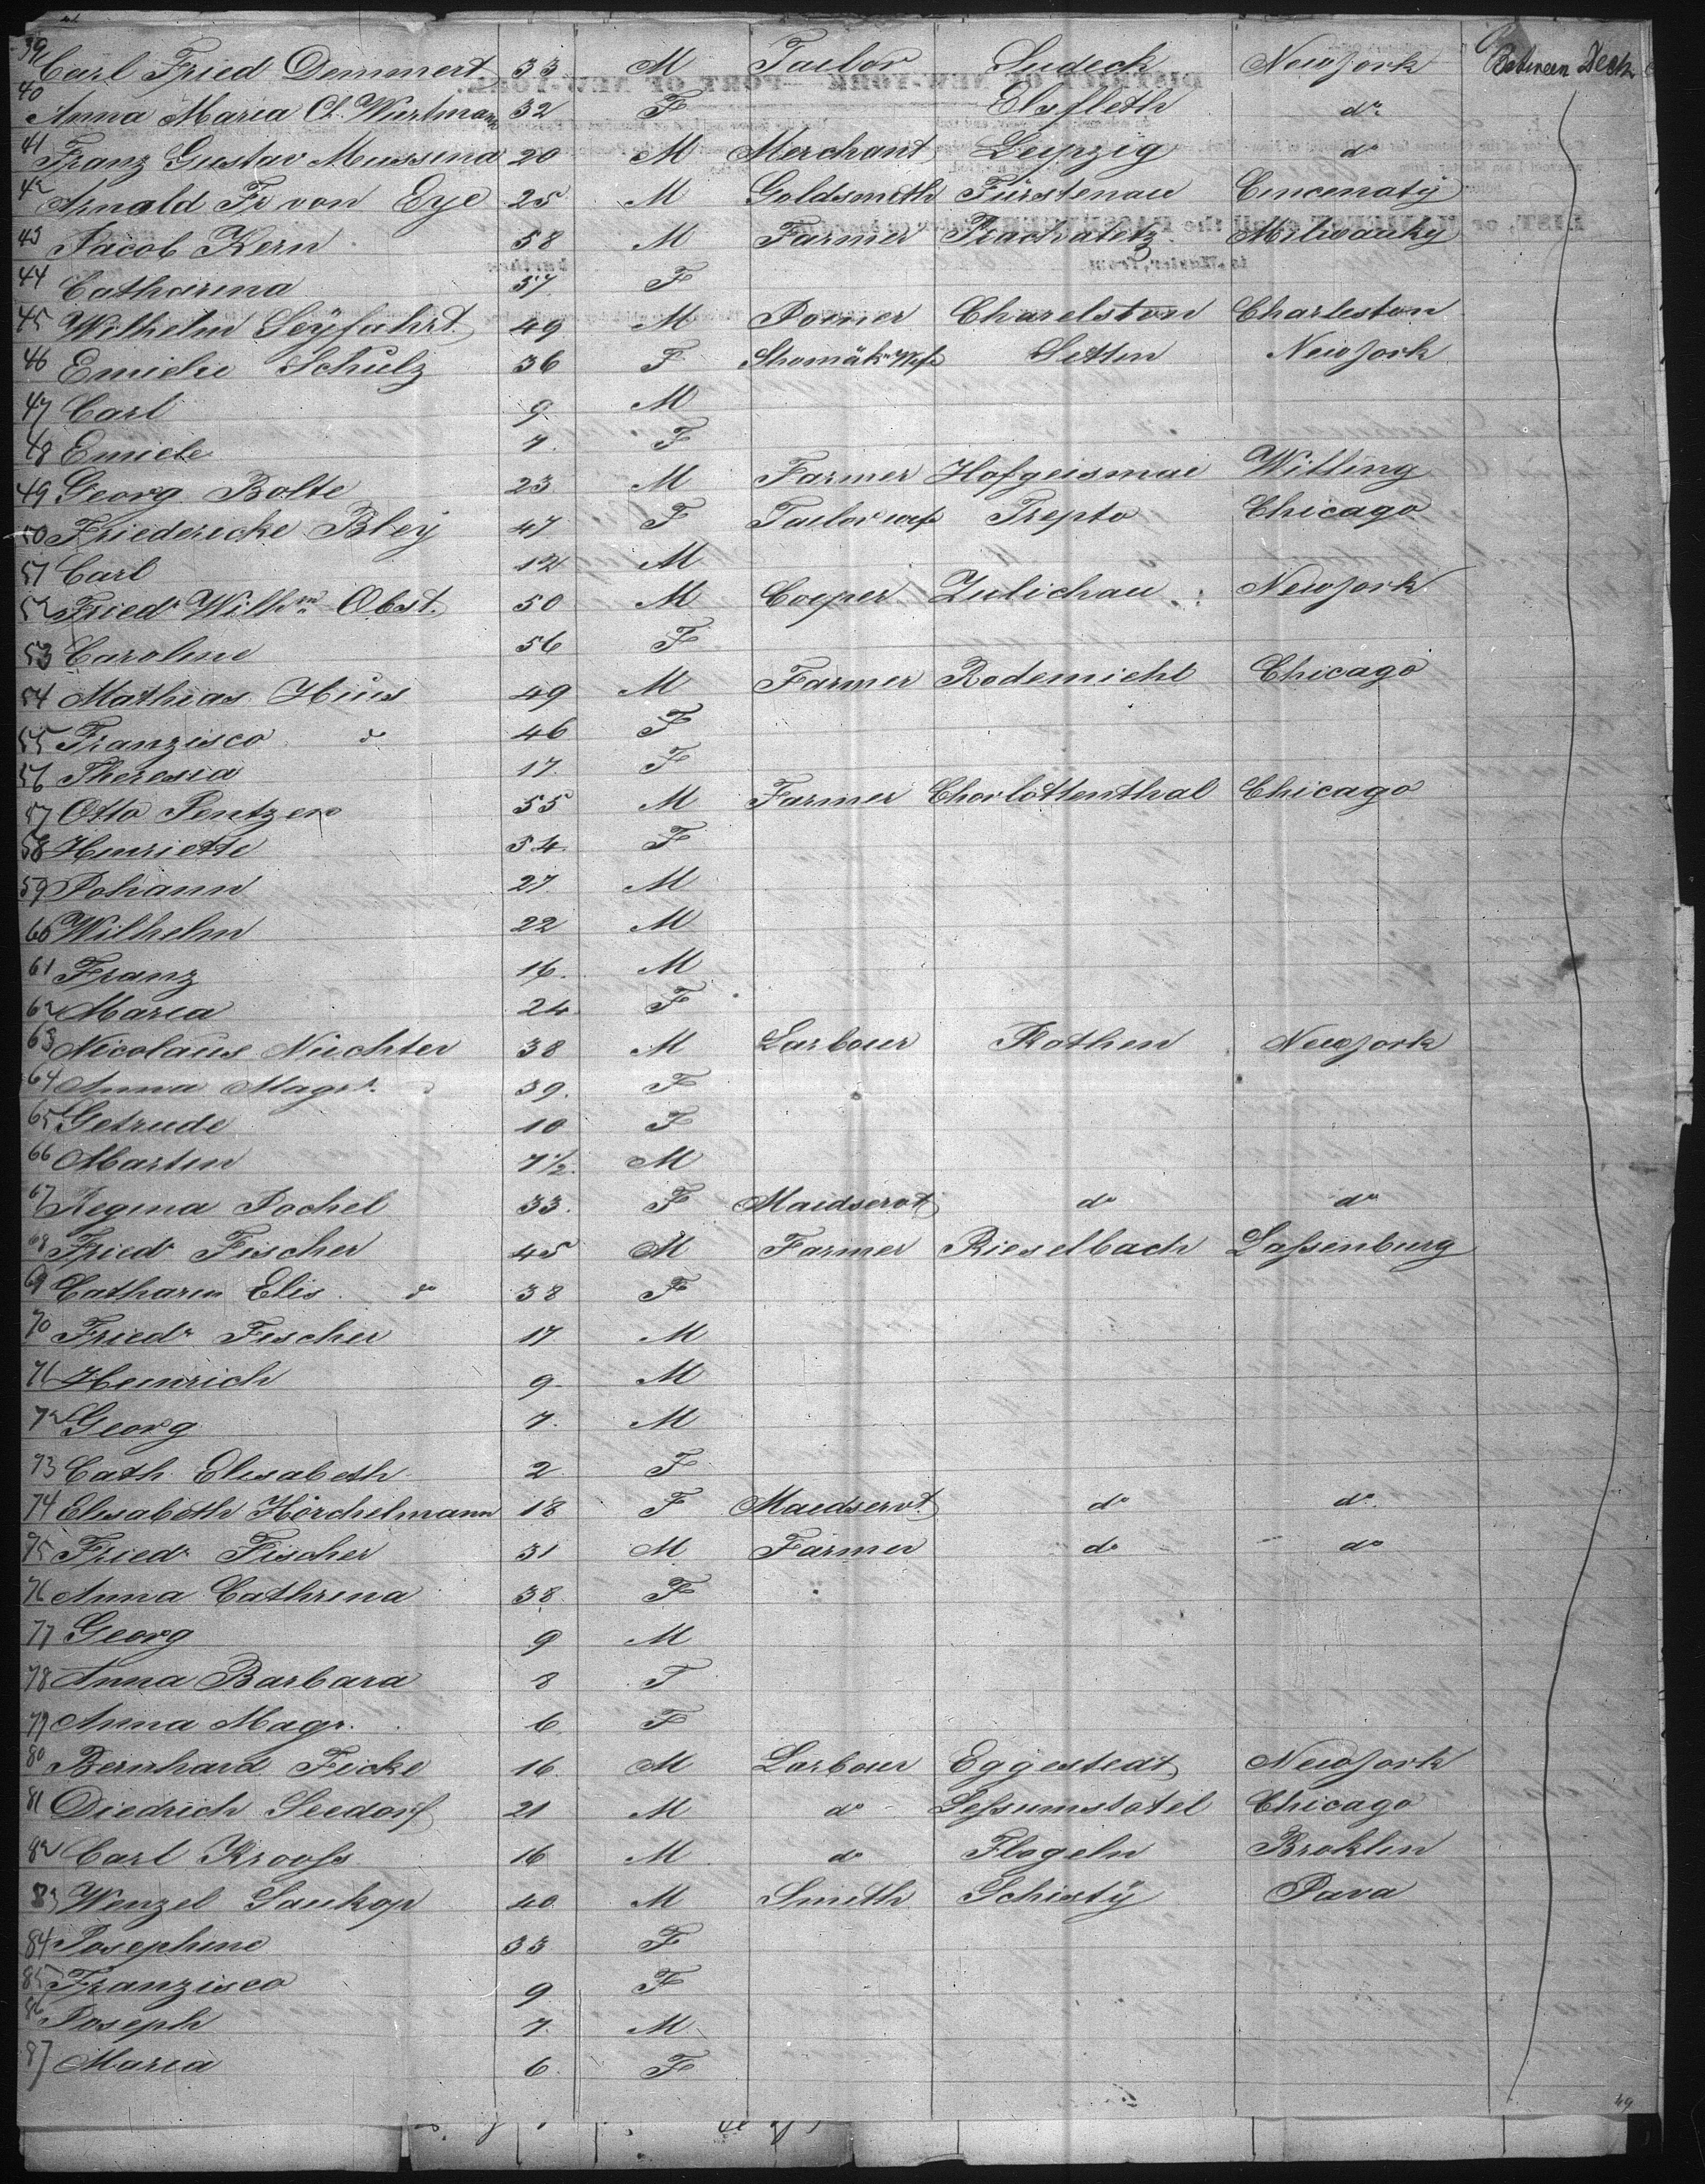 39 Carl Fried Demmert 33 M Taelor Ludeck New York Between Deck
40 Anna Maria Ch. Wurtmann 32 F Elsfleth do
41 Franz Gustav Mussina 20 M Merchant Leipzig do
42 Arnold Fr von Eye 25 M Goldsmeth Fürstenau Cincenaty
43 Jacob Kern 58 M Farmer Prachatetz Milwauky
44 Catharina 57 F
45 Wilhelm Seyfahrt 49 M Charelston Charleston
46 Emielie Schulz 36 F Shomäkr Wefe Settin New York
47 Carl 9 M
48 Emiele 7. F
49 Georg Bolte 23 M Farmer Hofgeismar Willing
50 Friedericke Bley 47 F Taelor wefe Trepto Chicago
51 Carl 12 M
52 Friedr Wilhm Obst. 50 M Cooper Zulichau New York
53 Caroline 56 F
54 Mathias Hüs 49 M Farmer Rodemichl Chicago
55 Franzisco do 46 F
56 Theresia 17. F
57 Otto Pentzen 55 M Farmer Chorlottenthal Chicago
58 Henriette 54. F
59 Johann 27. M
60 Wilhelm 22 M
61 Franz 16. M
62 Maria 24 F
63 Nicolaus Nüchter 38 M Larbour Rothen New York
64 Anna Magr. 39. F
65 Getrude 10 F
66 Marten 7 1/2. M
67 Regina Jochel 33. F Maedservt do do
68 Friedr Fischer 45 M Farmer Rieselbach Lassenburg
69 Catharin Elis. do 38 F
70 Friedr Fischer 17 M
71 Heinrich 9. M
72 Georg 7. M
73 Cath. Elisabeth 2 F
74 Elisabeth Hörchelmann 18 F Maedservt do do
75 Friedr Fischer 31 M Farmer do do
76 Anna Cathrina 38 F
77 Georg 9 M
78 Anna Barbara 8 F
79 Anna Magr. 6. F
80 Bernhard Ficke 16 M Larbour Eggestedt New York
81 Diedrich Seedorf 21 M do Lessumstotel Chicago
82 Carl Krooss 16 M do Flogeln Broklin
83 Wenzel Saukop 40 M Smeth Schisty Pava
84 Josephine 33 F
85 Franzisca 9 F
86 Joseph 7. M
87 Maria 6. F
49